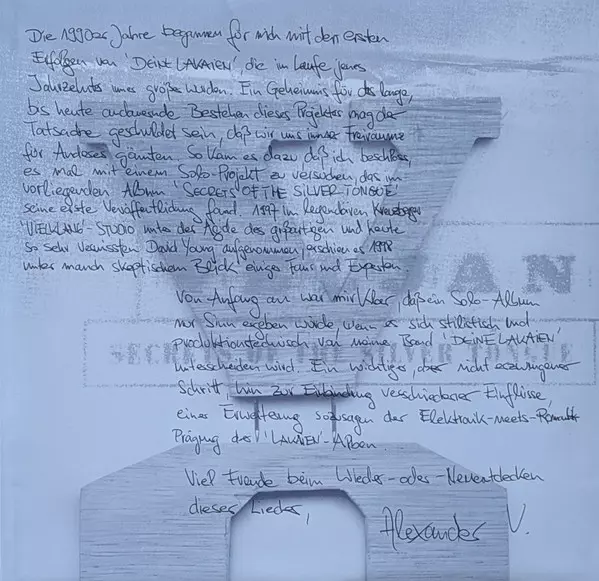 Die 1990er Jahre begannen für mich mit den ersten
Erfolgen von 'DEINE LAKAIEN', die im Laufe jenes
Jahrzehntes immer größer wurden. Ein Geheimnis für das lange,
bis heute andauernde Bestehen dieses Projektes mag der
Tatsache geschuldet sein, daß wir uns immer Freiräume
für Anderes gönnten. So kam es dazu daß ich beschloss,
es mal mit einem Solo-Projekt zu versuchen, das im
vorliegenden Album 'SECRETS OF THE SILVER TONGUE'
seine erste Veröffentlichung fand. 1997 im legendären Kreuzberger
'VIELKLANG'-STUDIO unter der Ägide des großartigen und heute
so sehr vermissten David Young aufgenommen, erschien es 1998
unter manch skeptischem Blick einiger Fans und Experten.
Von Anfang an war mir klar, daß ein Solo-Album
nur Sinn ergeben würde, wenn es sich stilistisch und
produktionstechnisch von meiner Band 'DEINE LAKAIEN'
unterscheiden wird. Ein wichtiger, aber nicht erzwungener
Schritt hin zur Einbindung verschiedener Einflüsse,
einer Erweiterung sozusagen der Elektronik-meets-Romantik
Prägung der 'LAKAIEN'-Alben.
SECRETS OF THE SILVER TONGUE
Viel Freude beim Wieder-oder-Neuentdecken
dieser Lieder,
Alexander V.